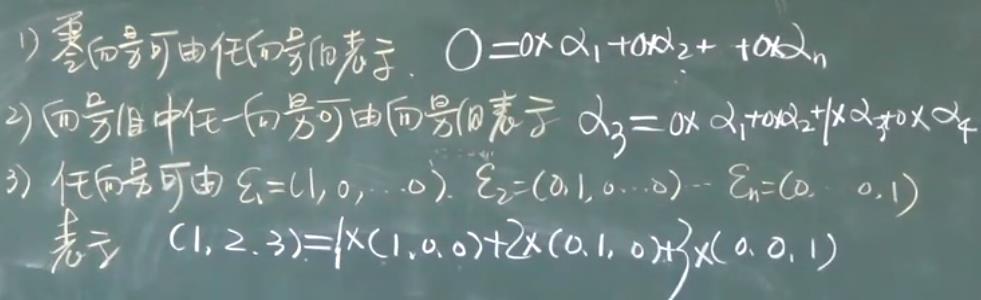 1) 零向量可由任向量组表示. 0=0×α₁+0×α₂+ +0×αₙ
2) 向量组中任一向量可由向量组表示 α₃=0×α₁+0×α₂+1×α₃+0×α₄
3) 任向量可由 ε₁=(1,0,...0). ε₂=(0.1,0...0)... εₙ=(0. 0.1)
表示 (1,2.3)=1×(1.0.0)+2×(0.1,0)+3×(0.0.1)